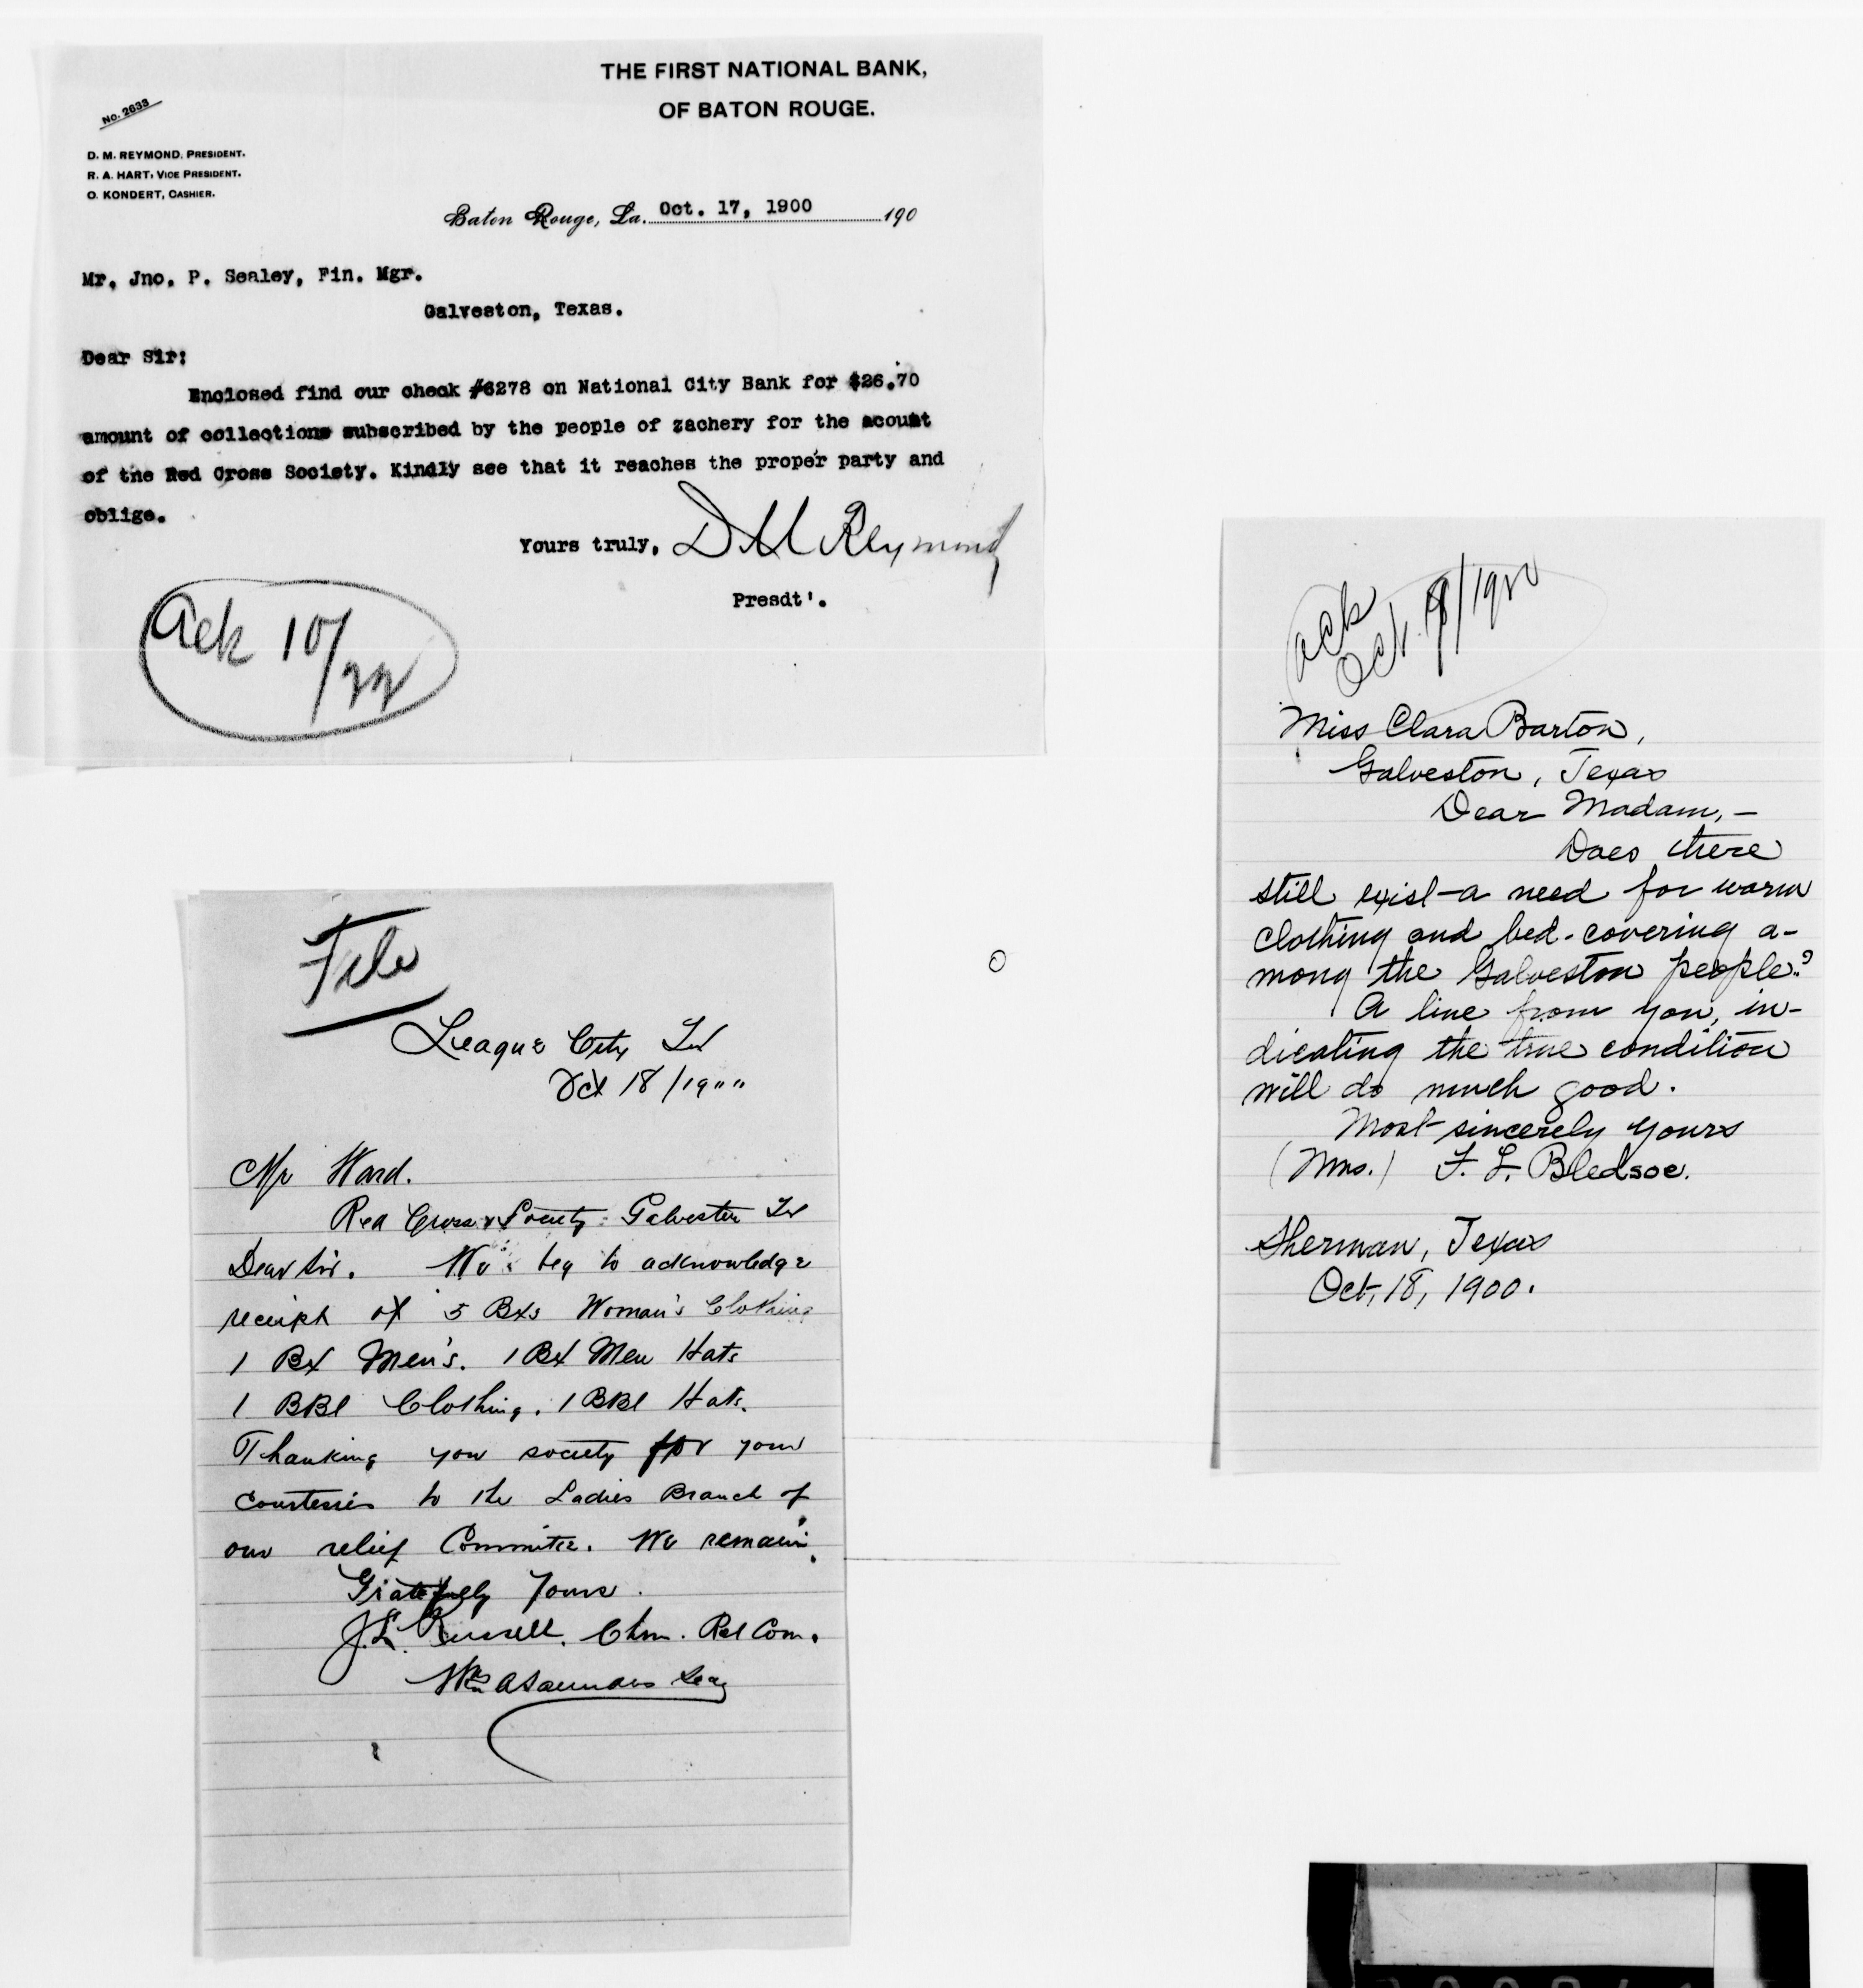 THE FIRST NATIONAL BANK,
OF BATON ROUGE.
No. 2633
D. M. REYMOND, PRESIDENT.
R. A. HART, VICE PRESIDENT.
O. KONDERT, CASHIER.
Baton Rouge, La. Oct. 17, 1900 190
Mr. Jno. P. Sealey, Fin. Mgr.
Galveston, Texas.
Dear Sir:
Enclosed find our check #6278 on National City Bank for $26.70
amount of collections subscribed by the people of zachery for the acount
of the Red Cross Society. Kindly see that it reaches the proper party and
oblige.
Yours truly, D M Reymond
Presdt'.
Ack 10/22
File
League City Tex
Oct 18/19""
Mr Ward.
Red Cross Society Galveston Tex
Dear Sir. We beg to acknowledge
receipt of 5 Bxs Woman's Clothing
1 Bx Men's. 1 Bx Men Hats
1 BBl Clothing. 1 BBl Hats.
Thanking you society for your
Courtesies to the Ladies Branch of
our relief Committee. We remain
Gratefully Yours.
J.L. Russell. Chm. Rel Com.
Saunders Secy
Ack
Oct. /1900
Miss Clara Barton,
Galveston, Texas
Dear Madam, —
Does there
still exist a need for warm
clothing and bed-covering a-
mong the Galveston people?
A line from you, in-
dicating the true condition
will do much good.
Most sincerely yours
(Mrs.) F. L. Bledsoe.
Sherman, Texas
Oct, 18, 1900.